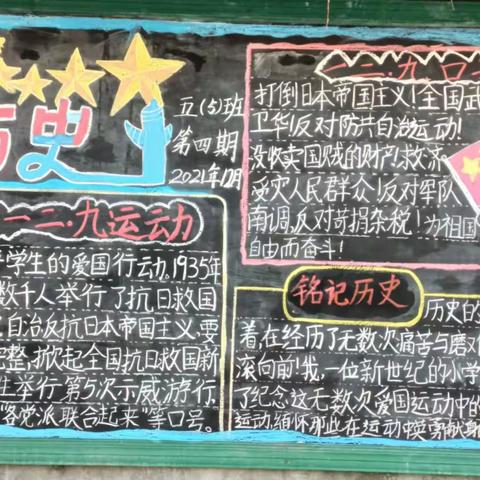 历史
五(5)班
第四期
2021年12月
一二·九运动
学生的爱国行动。1935年
数千人举行了抗日救国
自治反抗日本帝国主义,要
完整,掀起全国抗日救国新
生举行第5次示威游行,
"各党派联合起来"等口号。
一二·九口
打倒日本帝国主义!全国武
卫华!反对防共自治运动!
没收卖国贼的财产,救济
受灾人民群众!反对军队
南调,反对苛捐杂税!为祖国
自由而奋斗!
铭记历史
历史的
着,在经历了无数次痛苦与磨
滚向前!我,一位新世纪的小学
了纪念这无数次爱国运动中的
运动,缅怀那些在运动中英勇献身